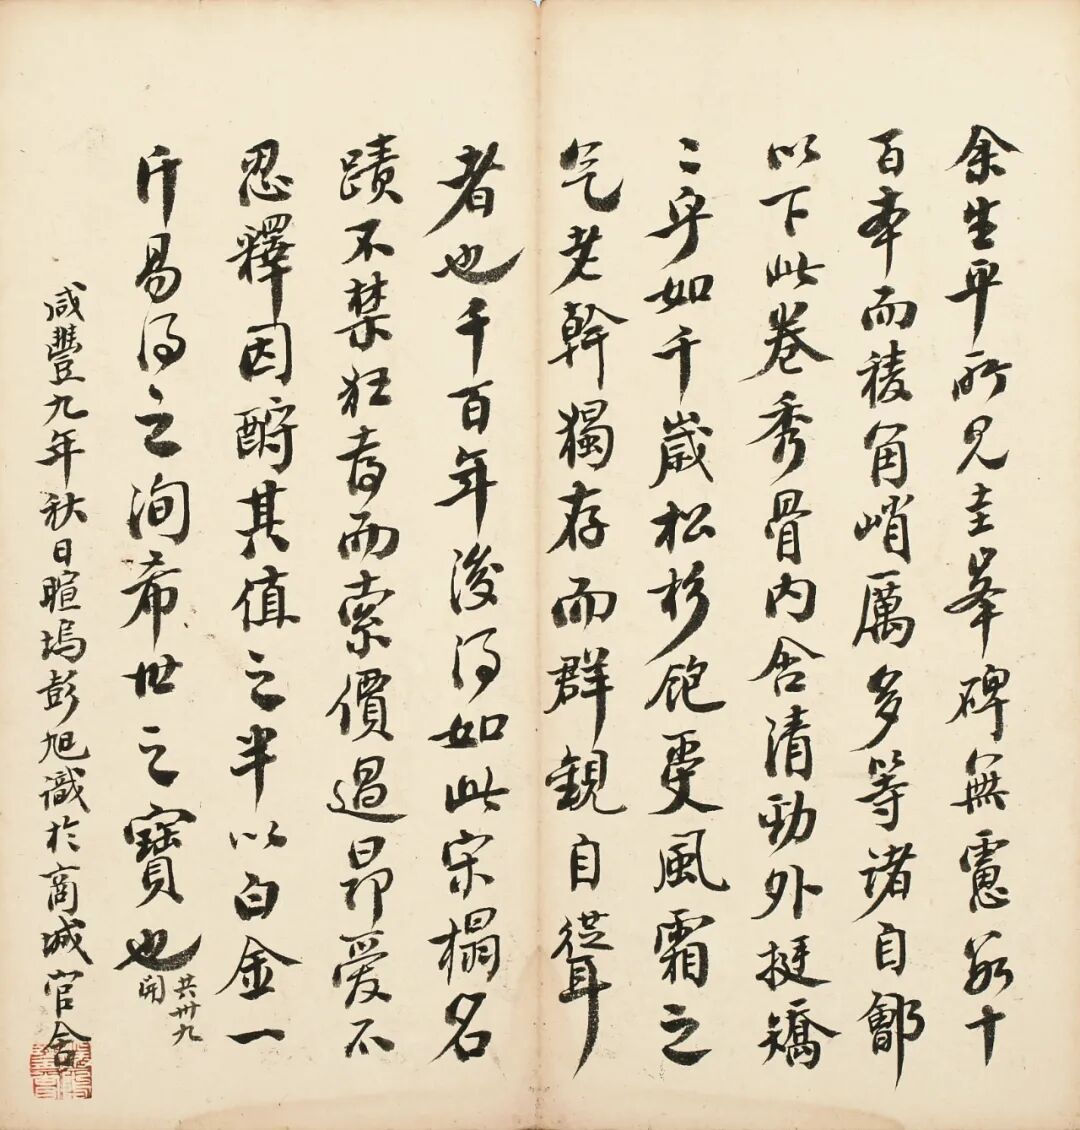 余生平所見圭峯碑無慮數十
百本而稜角峭厲多等諸自鄶
以下此卷秀骨內含清勁外挺矯
〻乎如千歲松杉飽更風霜之
气老幹獨存而群觀自聳
者也千百年後得如此宋榻名
蹟不禁狂喜而索價過昂愛不
忍釋因酧其值之半以白金一
斤易得之洵希世之寶也
共卅九
開
咸豐九年秋日暄塢彭旭識於商城官舍